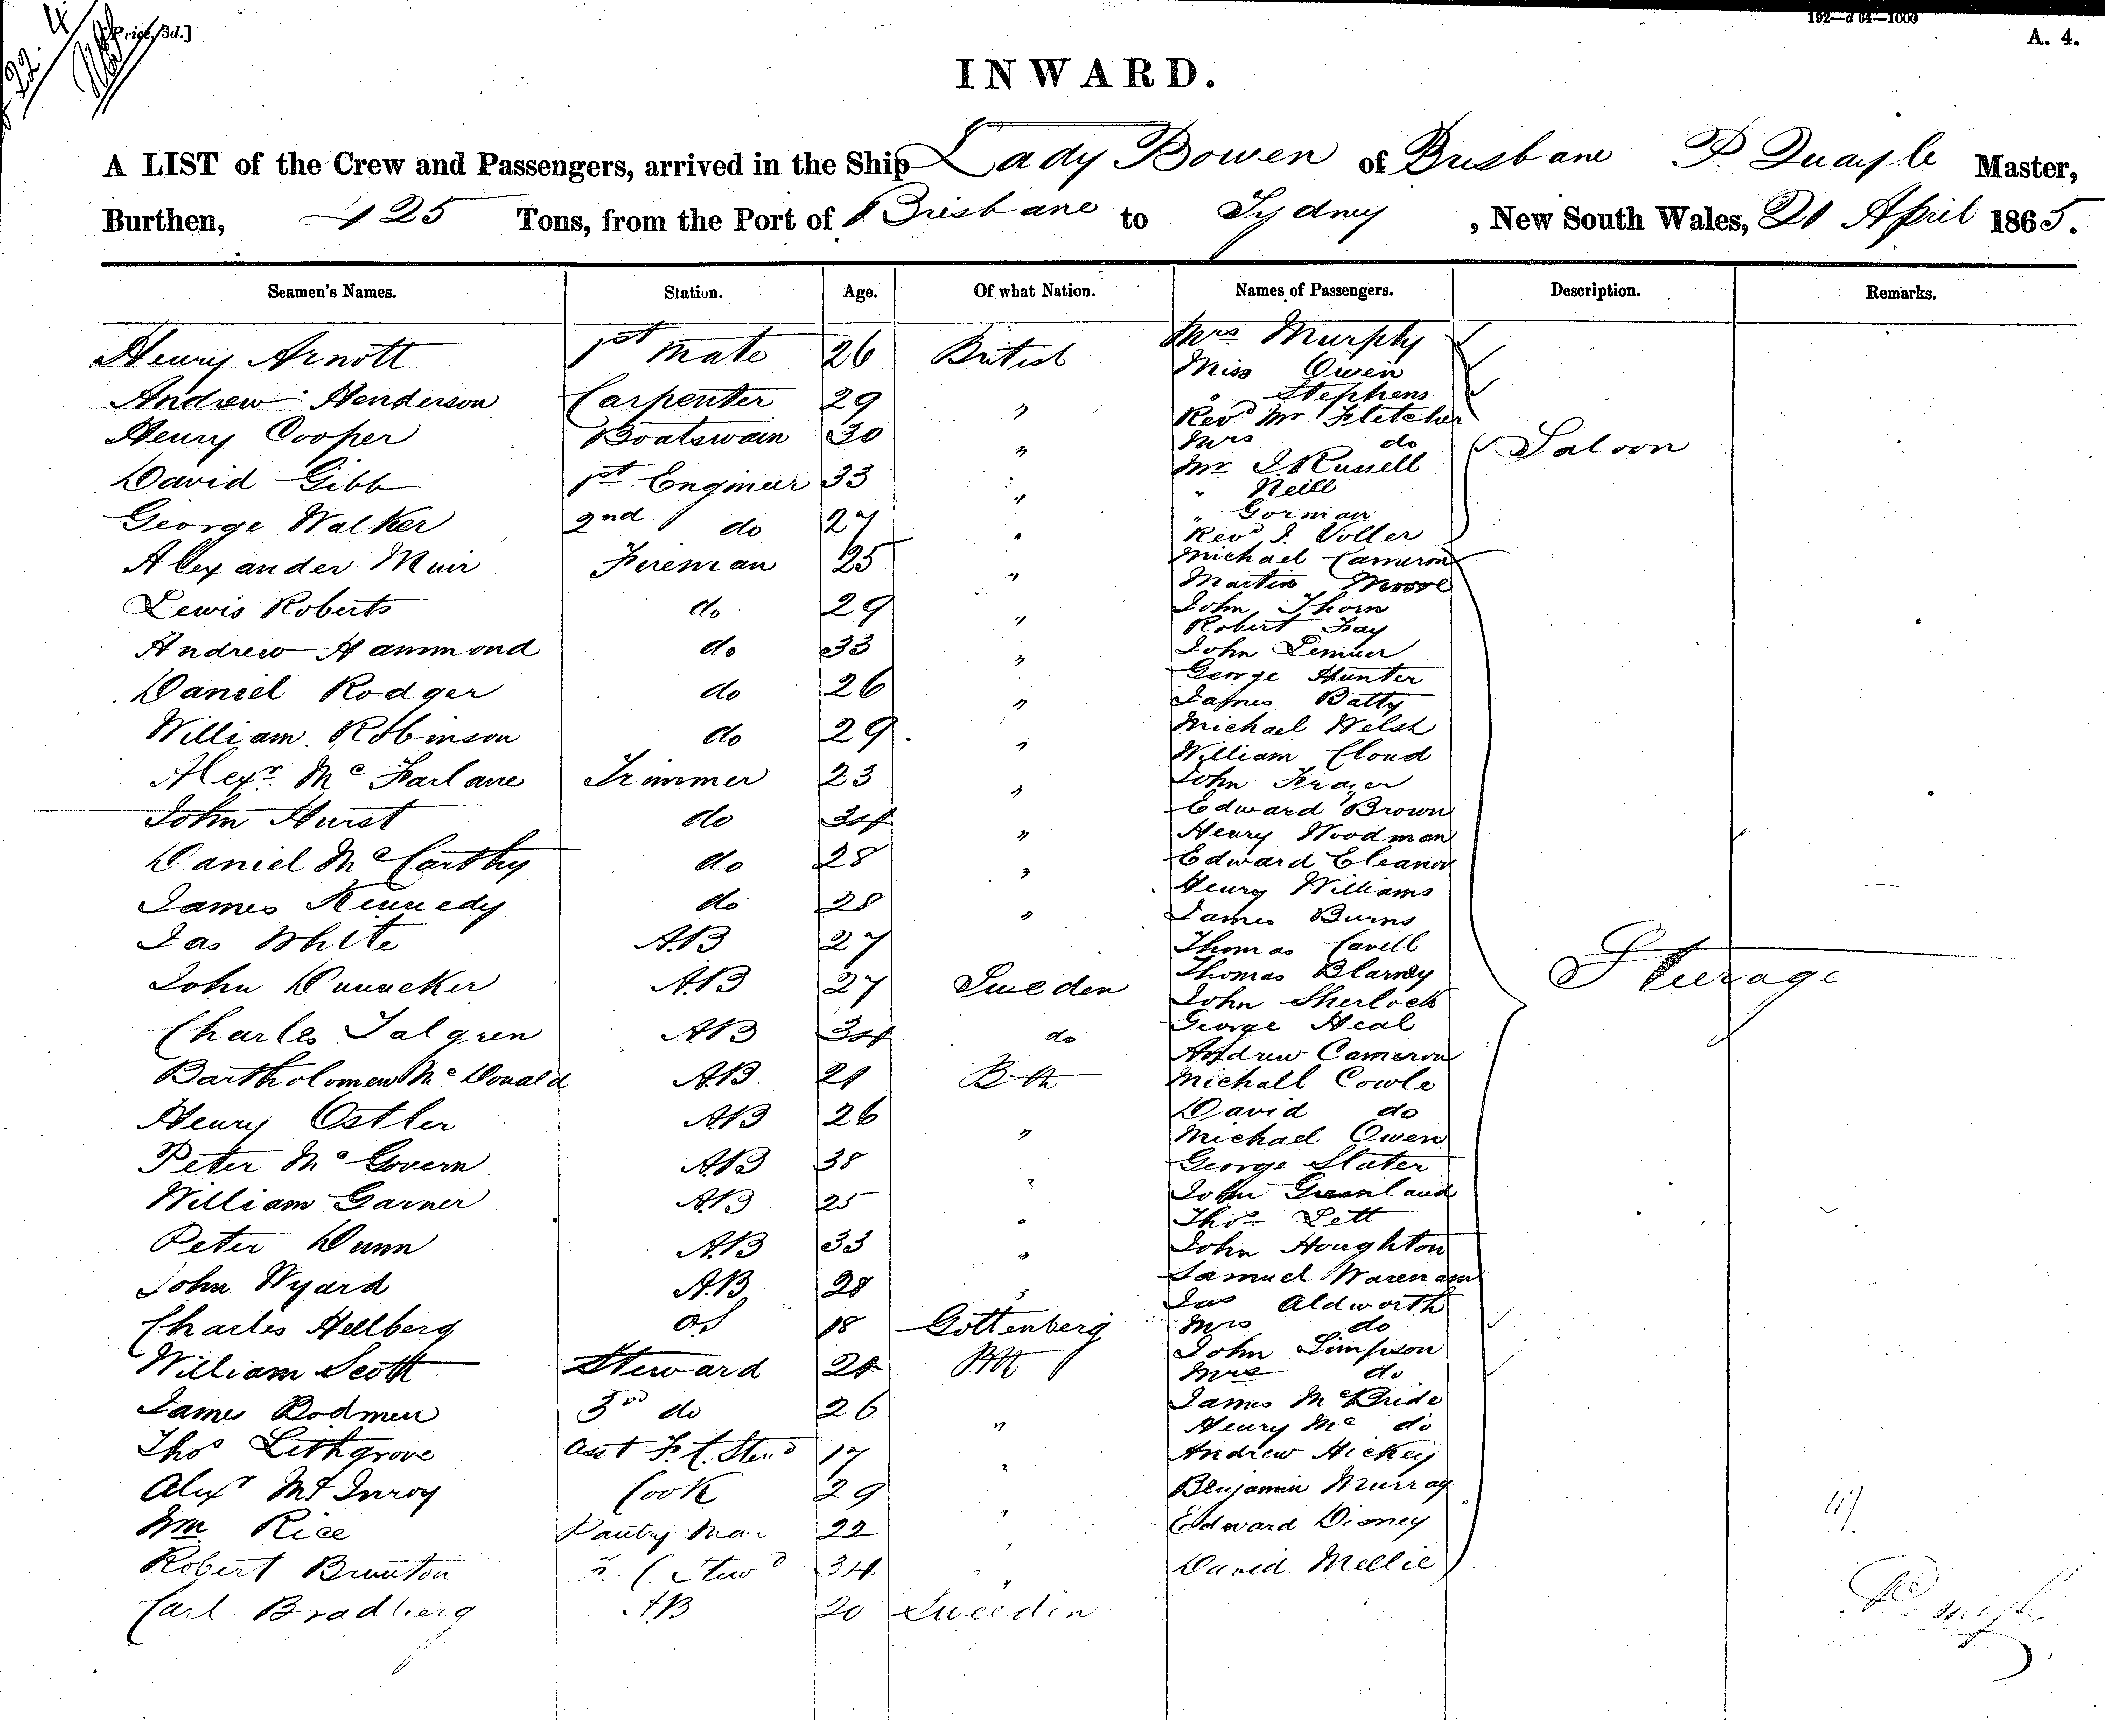 22. 4
[Price, 3d.]
192—d 64—1000
A. 4.
INWARD.
A LIST of the Crew and Passengers, arrived in the Ship Lady Bowen of Brisbane P Quayle Master,
Burthen, 425 Tons, from the Port of Brisbane to Sydney , New South Wales, 21 April 1865.
Seamen's Names. Station. Age. Of what Nation. Names of Passengers. Description. Remarks.
Henry Arnott 1st Mate 26 British
Andrew Henderson Carpenter 29 "
Henry Cooper Boatswain 30 "
David Gibb 1st Engineer 33 "
George Walker 2nd do 27 "
Alexander Muir Fireman 25 "
Lewis Roberts do 29 "
Andrew Hammond do 33 "
Daniel Rodger do 26 "
William Robinson do 29 "
Alexr McFarlane Trimmer 23 "
John Hurst do 34 "
Daniel McCarthy do 28 "
James Kennedy do 28 "
Jas White AB 27
John AB 27 Sweden
Charles Talgren AB 34 do
Bartholomew McDonald AB 21
Henry Ostler AB 26 "
Peter McGovern AB 38 "
William Garner AB 25 "
Peter Dunn AB 33 "
John Wyard AB 28 "
Charles Hellberg OS 18 Gottenberg
William Scott Steward
James Bodmen 3rd do 26 "
Thos Lithgrove asst F.C. Stewd 17 "
Alexr McInroy Cook 29 "
Wm Rice Pantry Man 22 "
Robert Brunton Stewd 34 "
Carl Bradberg AB 20 Sweedin
Mrs Murphy
Miss Owen
" Stephens
Revd Mr Fletcher
Mrs do
Mr J. Russell
" Neill
" Gorman
Revd J. Voller
Saloon
Michael Cameron
Martin Moore
John Thorn
Robert Fay
John
George Hunter
James Batty
Michael Welsh
William Cloud
John Frazer
Edward Brown
Henry Woodman
Edward Eleanor
Henry Williams
James Burns
Thomas Cavell
Thomas Blamey
John Sherlock
George Heal
Andrew Cameron
Michall Cowle
David do
Michael Owen
George Slater
John Greenland
Thos Lett
John Houghton
Samuel Wareham
Jas Aldworth
Mrs do
John Simpson
Mrs do
James McBride
Henry Mc do
Andrew Hickey
Benjamin Murray
Edward Disney
David Mellie
Steerage